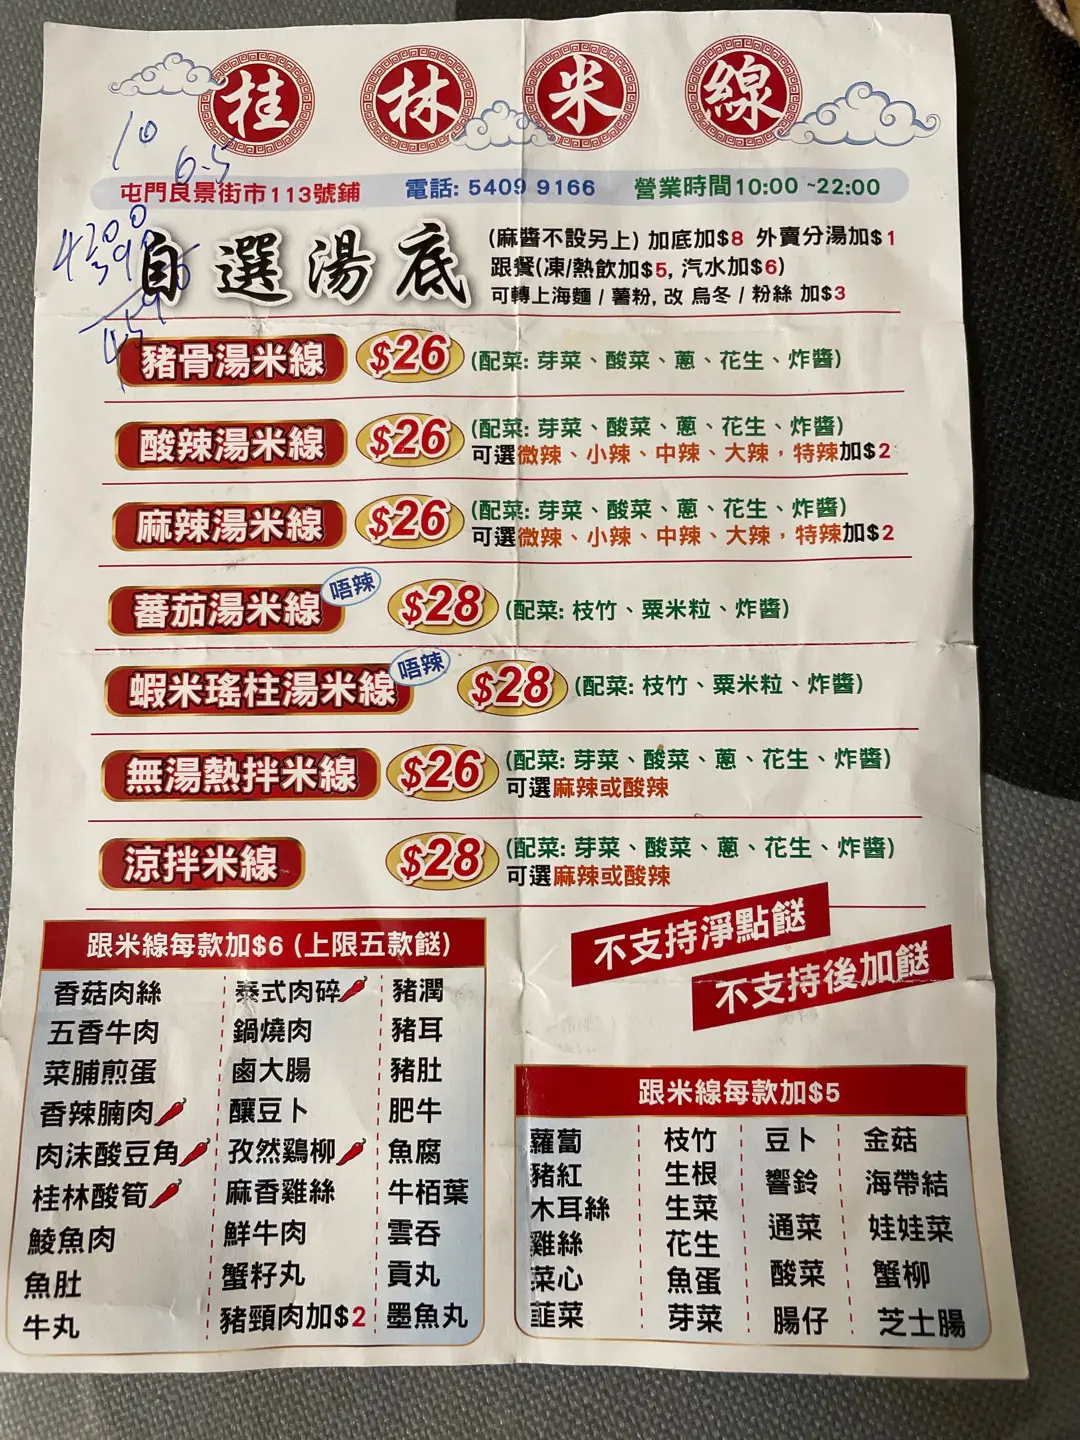 桂林米線
10
6.5
屯門良景街市113號鋪 電話: 5409 9166 營業時間10:00 ~22:00
4200
自選湯底
(麻醬不設另上) 加底加$8 外賣分湯加$1
跟餐(凍/熱飲加$5, 汽水加$6)
可轉上海麵 / 薯粉, 改 烏冬 / 粉絲 加$3
豬骨湯米線 $26 (配菜: 芽菜、酸菜、蔥、花生、炸醬)
酸辣湯米線 $26 (配菜: 芽菜、酸菜、蔥、花生、炸醬)
可選微辣、小辣、中辣、大辣，特辣加$2
麻辣湯米線 $26 (配菜: 芽菜、酸菜、蔥、花生、炸醬)
可選微辣、小辣、中辣、大辣，特辣加$2
蕃茄湯米線 唔辣 $28 (配菜: 枝竹、粟米粒、炸醬)
蝦米瑤柱湯米線 唔辣 $28 (配菜: 枝竹、粟米粒、炸醬)
無湯熱拌米線 $26 (配菜: 芽菜、酸菜、蔥、花生、炸醬)
可選麻辣或酸辣
涼拌米線 $28 (配菜: 芽菜、酸菜、蔥、花生、炸醬)
可選麻辣或酸辣
不支持淨點餸
不支持後加餸
跟米線每款加$6 (上限五款餸)
香菇肉絲 泰式肉碎 豬潤
五香牛肉 鍋燒肉 豬耳
菜脯煎蛋 鹵大腸 豬肚
香辣腩肉 釀豆卜 肥牛
肉沫酸豆角 孜然鷄柳 魚腐
桂林酸筍 麻香雞絲 牛栢葉
鯪魚肉 鮮牛肉 雲吞
魚肚 蟹籽丸 貢丸
牛丸 豬頸肉加$2 墨魚丸
跟米線每款加$5
蘿蔔 枝竹 豆卜 金菇
豬紅 生根 響鈴 海帶結
木耳絲 生菜 通菜 娃娃菜
雞絲 花生 酸菜 蟹柳
菜心 魚蛋 腸仔 芝士腸
韮菜 芽菜